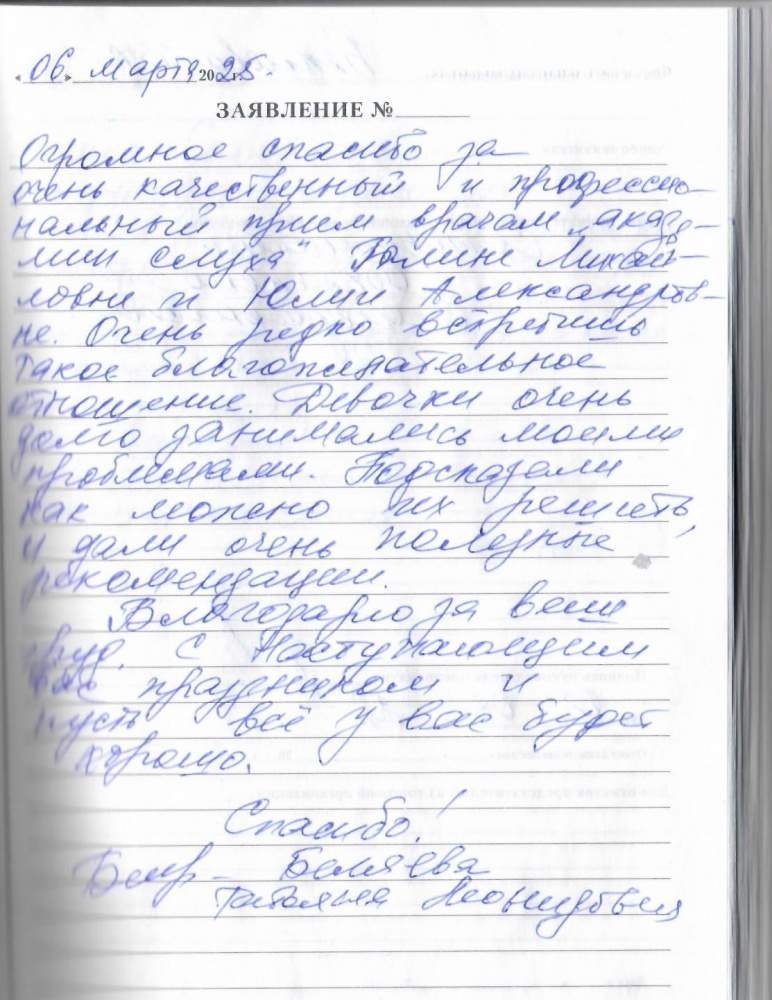 « 06 » Марта 2025 г.
ЗАЯВЛЕНИЕ №
Огромное спасибо за
очень качественный и профессио-
нальный прием врачам „акаде-
мии слуха" Галине Михай-
ловне и Юлии Александров-
не. Очень редко встретишь
такое благожелательное
отношение. Девочки очень
долго занимались моими
проблемами. Подсказали
как можно их решить,
и дали очень полезные
рекомендации.
Благодарю за ваш
труд. С Наступающим
Вас праздником и
пусть всё у вас будет
хорошо.
Спасибо!
Беляева
Татьяна